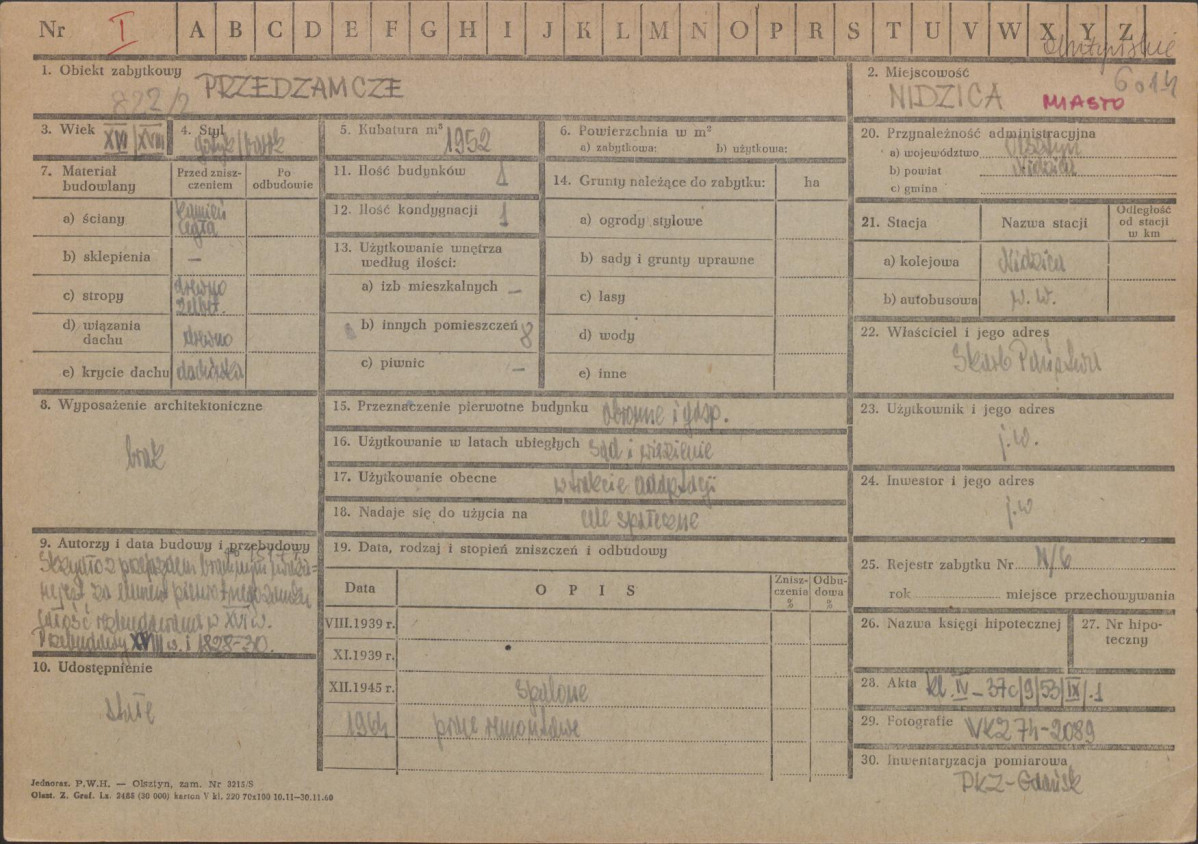 Nr I A B C D E F G H I J K L M N O P R S T U V W X Y Z
1. Obiekt zabytkowy
822/2 PRZEDZAMCZE
2. Miejscowość
6014
NIDZICA MIASTO
3. Wiek XVI/XVIII
4. Styl gotyk/barok
5. Kubatura m³ 1952
6. Powierzchnia w m²
a) zabytkowa: b) użytkowa:
7. Materiał budowlany
Przed zniszczeniem
Po odbudowie
a) ściany kamień
cegła
b) sklepienia —
c) stropy drewno
żelbet.
d) wiązania dachu drewno
e) krycie dachu dachówka
8. Wyposażenie architektoniczne
brak
9. Autorzy i data budowy i przebudowy
całość rozbudowana w XVI w.
Przebudowy XVIII w. i 1828-30.
10. Udostępnienie
stałe
11. Ilość budynków 1
12. Ilość kondygnacji 1
13. Użytkowanie wnętrza
według ilości:
a) izb mieszkalnych —
b) innych pomieszczeń 8
c) piwnic —
14. Grunty należące do zabytku: ha
a) ogrody stylowe
b) sady i grunty uprawne
c) lasy
d) wody
e) inne
15. Przeznaczenie pierwotne budynku obronne i gosp.
16. Użytkowanie w latach ubiegłych sąd i więzienie
17. Użytkowanie obecne w trakcie adaptacji
18. Nadaje się do użycia na cele społeczne
19. Data, rodzaj i stopień zniszczeń i odbudowy
Data O P I S Zniszczenia % Odbudowa %
VIII.1939 r.
XI.1939 r.
XII.1945 r. spalone
1964 prace remontowe
20. Przynależność administracyjna
a) województwo Olsztyn
b) powiat Nidzica
c) gmina
21. Stacja Nazwa stacji Odległość od stacji w km
a) kolejowa Nidzica
b) autobusowa w. w.
22. Właściciel i jego adres
Skarb Państwa
23. Użytkownik i jego adres
j.w.
24. Inwestor i jego adres
j.w
25. Rejestr zabytku Nr N/6
rok miejsce przechowywania
26. Nazwa księgi hipotecznej
27. Nr hipoteczny
28. Akta Kl. IV-37c/9/53/IX/.1
29. Fotografie WKZ 74-2089
30. Inwentaryzacja pomiarowa
PKZ-Gdańsk
Jednoraz. P.W.H. — Olsztyn, zam. Nr 3215/S
Olszt. Z. Graf. Lz. 2488 (30 000) karton V kl. 220 70x100 10.11—30.11.60